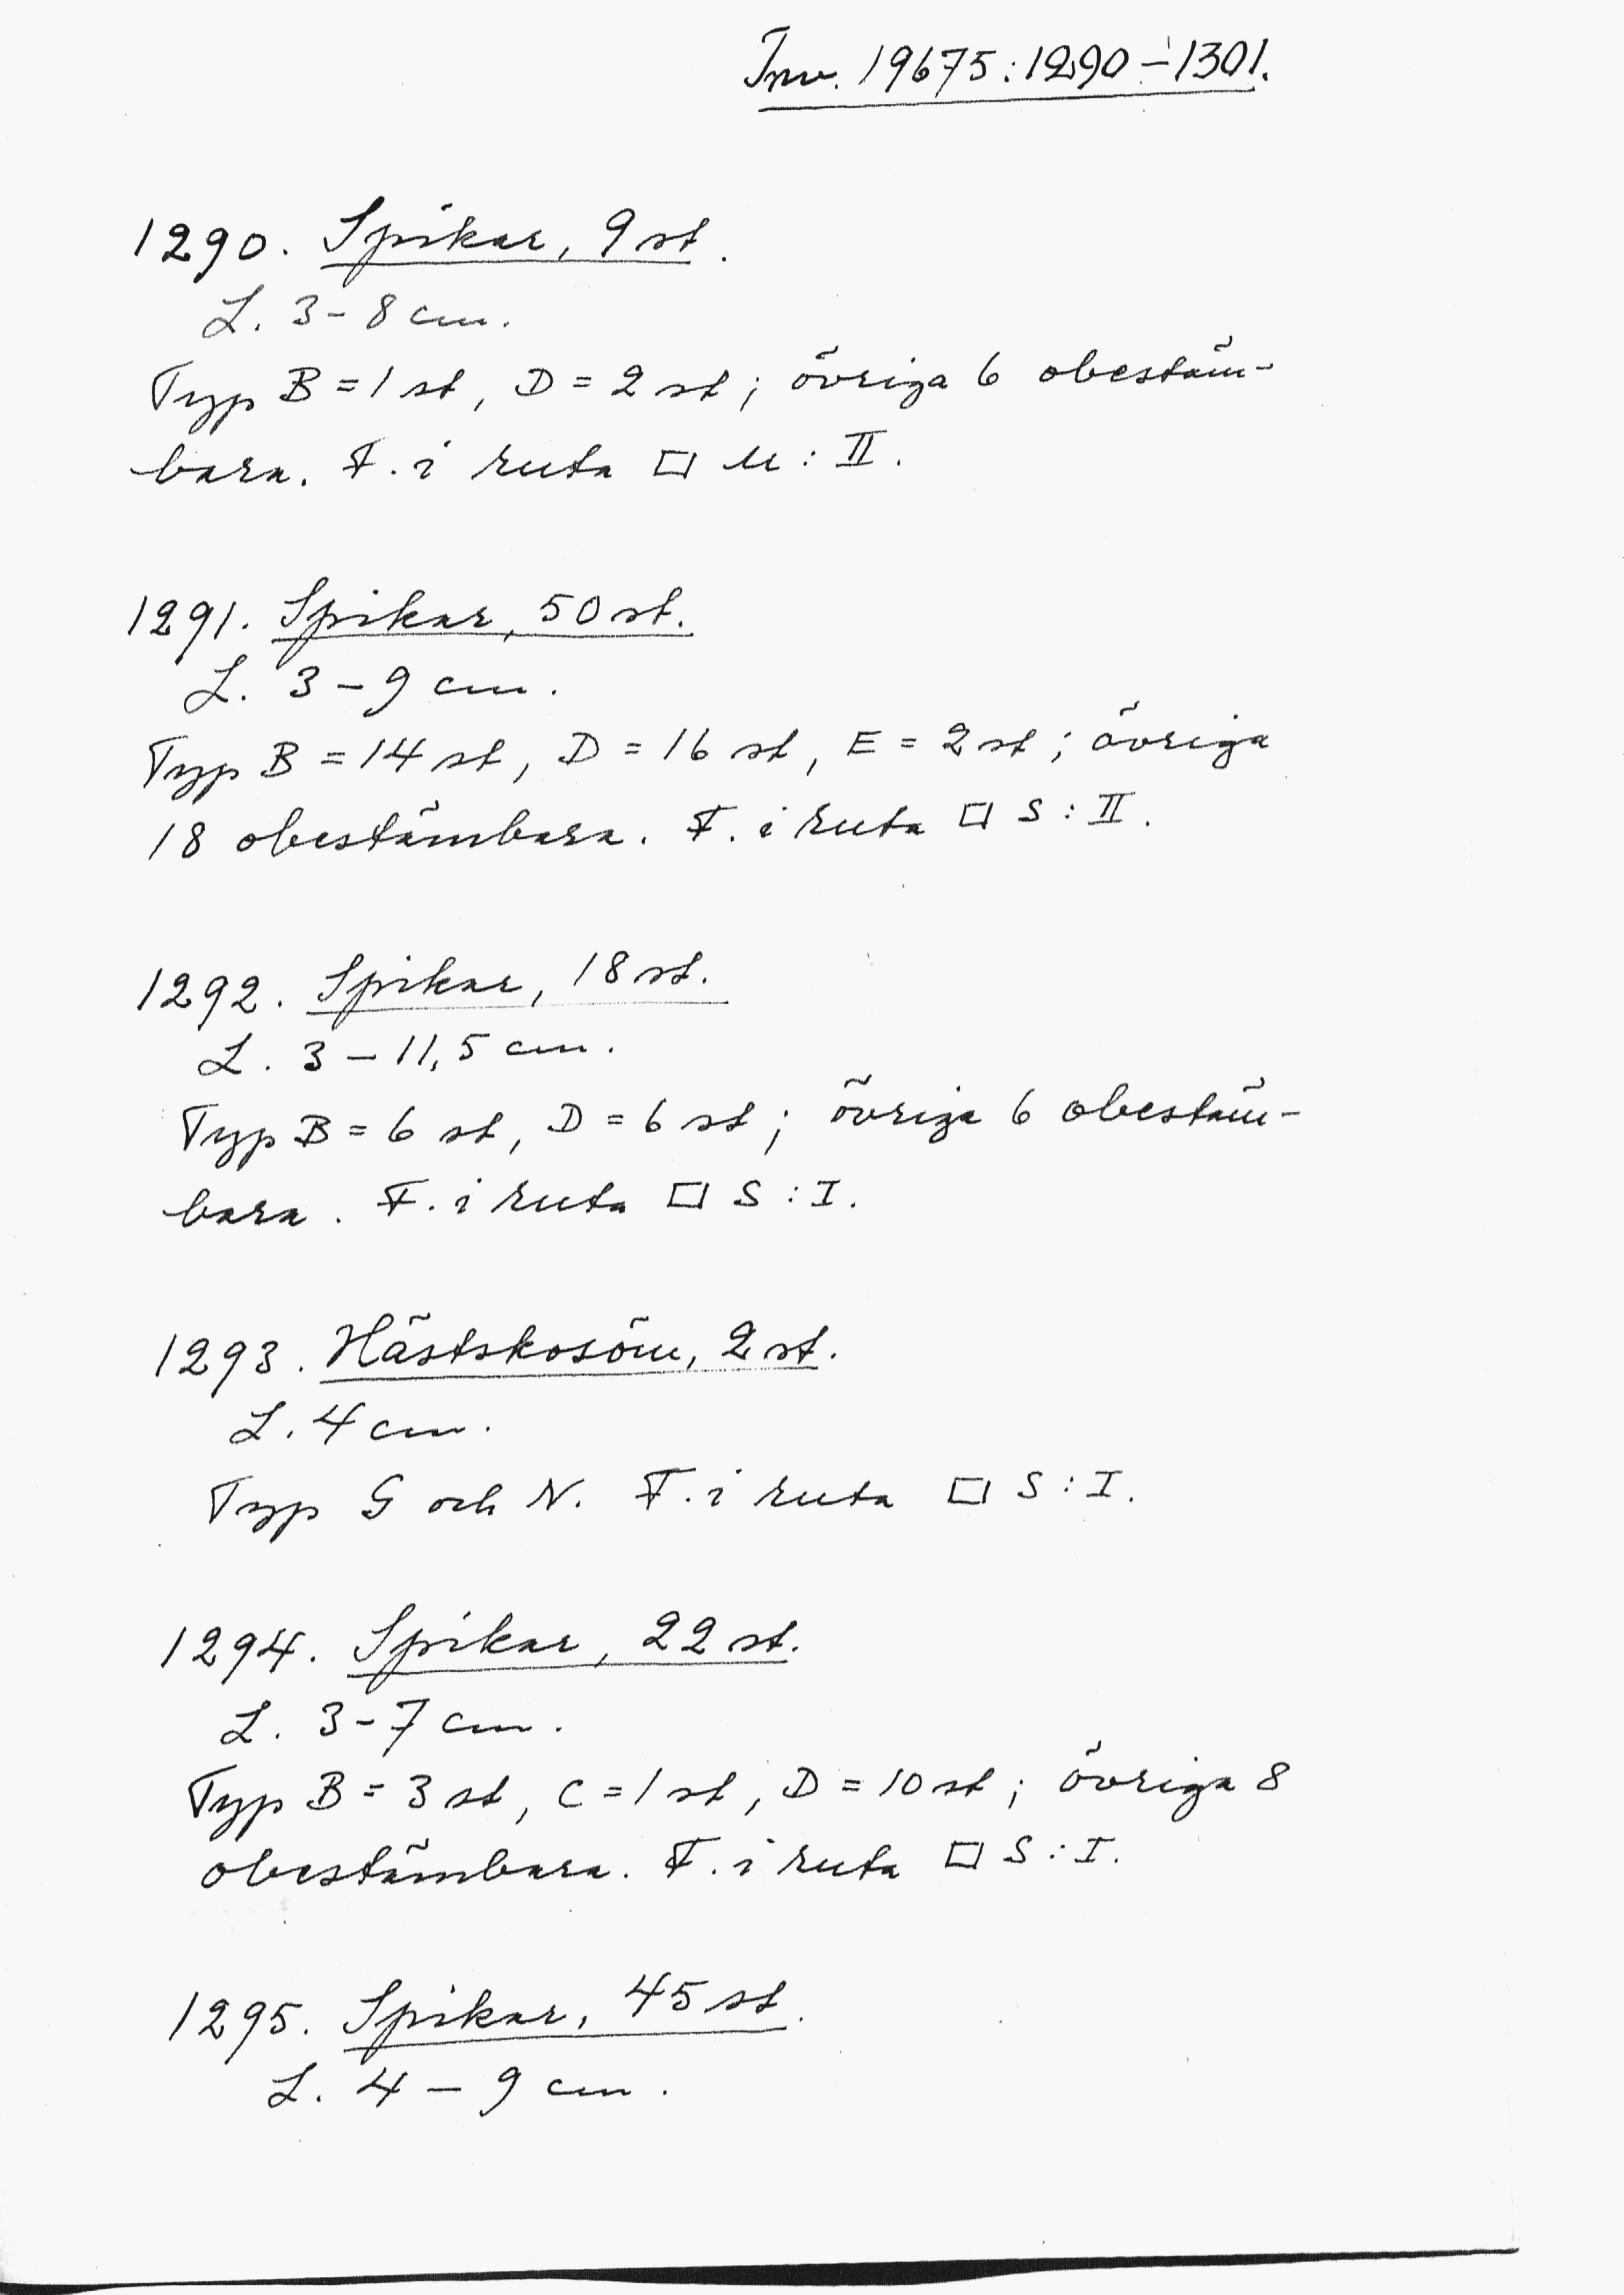 Inv. 19675:1290-1301.
1290. Spikar, 9 st.
L. 3-8 cm.
Typ B = 1 st, D = 2 st; övriga 6 obestäm-
bara. F. i ruta □ M : II.
1291. Spikar, 50 st.
L. 3-9 cm.
Typ B = 14 st, D = 16 st, E = 2 st; övriga
18 obestämbara. F. i ruta □ S : II.
1292. Spikar, 18 st.
L. 3-11,5 cm.
Typ B = 6 st, D = 6 st; övriga 6 obestäm-
bara. F. i ruta □ S : I.
1293. Hästskosöm, 2 st.
L. 4 cm.
Typ G och N. F. i ruta □ S : I.
1294. Spikar, 22 st.
L. 3-7 cm.
Typ B = 3 st, C = 1 st, D = 10 st; övriga 8
obestämbara. F. i ruta □ S : I.
1295. Spikar, 45 st.
L. 4-9 cm.